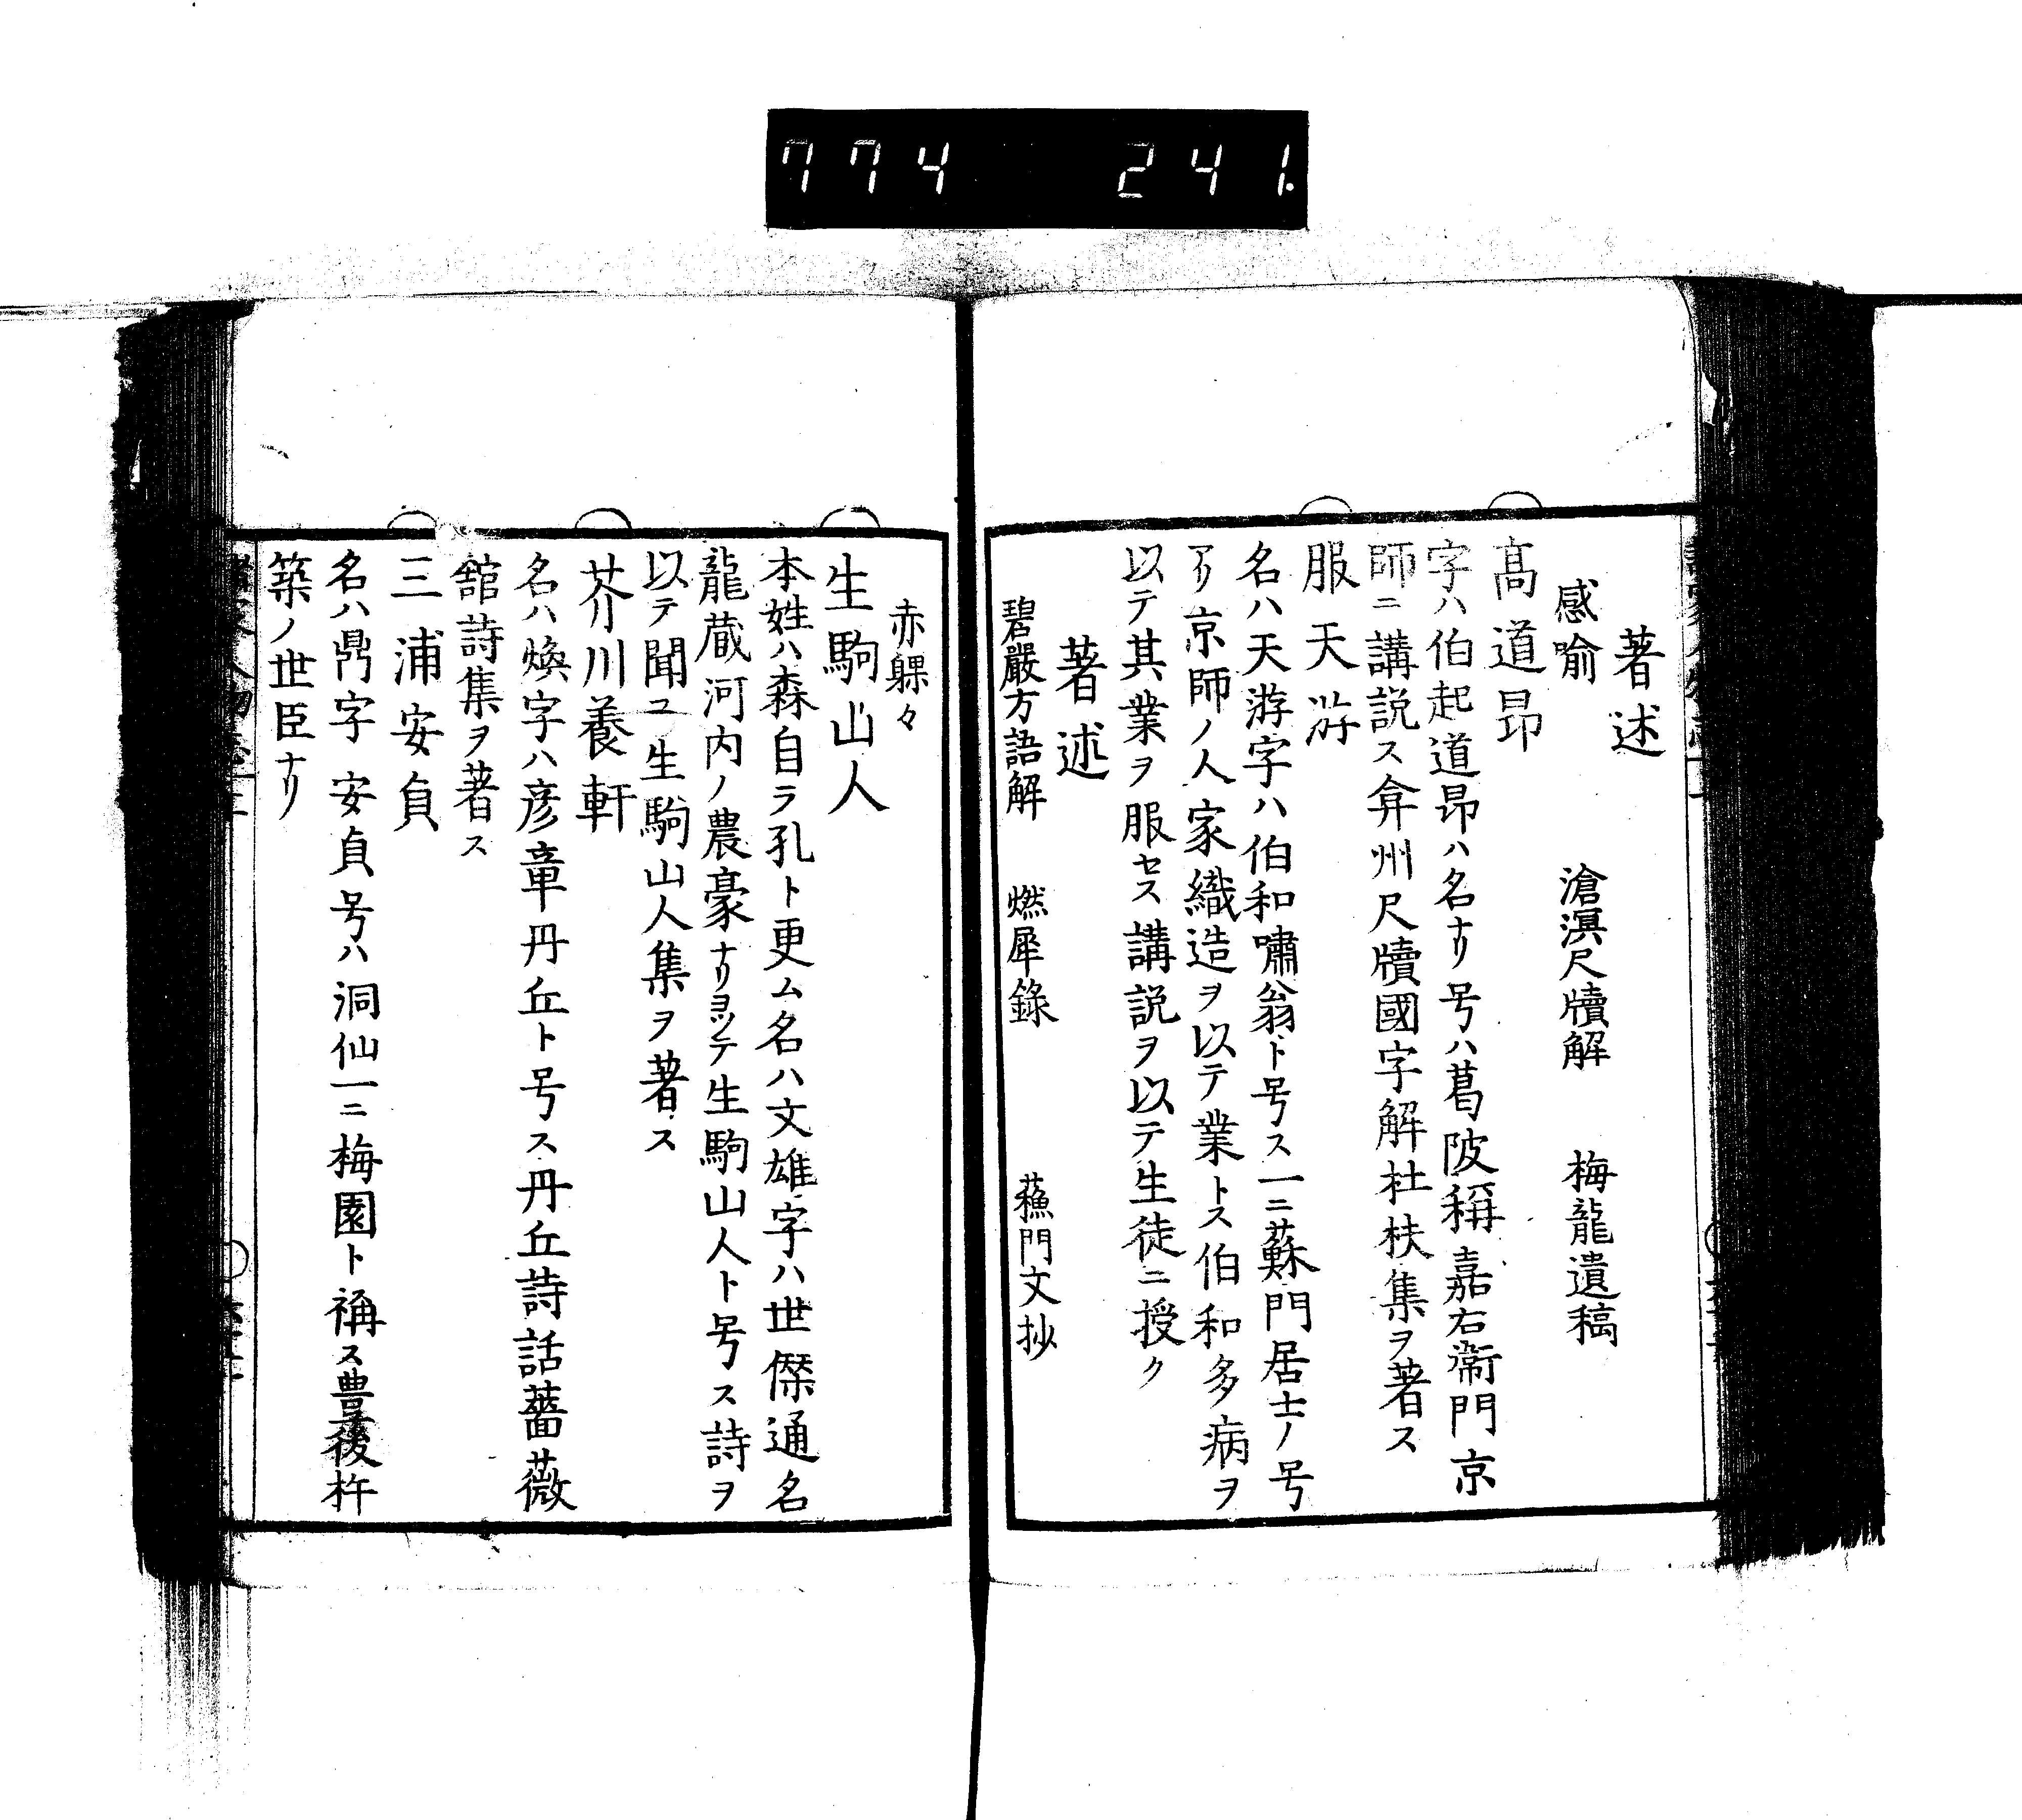 774 241.
著述
感喻 滄溟尺牘解 梅龍遺稿
髙道昂
字ハ伯起道昂ハ名ナリ号ハ葛陂稱嘉右衞門京
師ニ講説ス弇州尺牘國字解杜扶集ヲ著ス
服天游
名ハ天游字ハ伯和嘯翁ト号ス一ニ蘇門居士ノ号
アリ京師ノ人家織造ヲ以テ業トス伯和多病ヲ
以テ其業ヲ服セス講説ヲ以テ生徒ニ授ク
著述
碧嚴方語解 燃犀錄 蘓門文抄
赤躶々
生駒山人
本姓ハ森自ラ孔ト更ム名ハ文雄字ハ世傑通名
龍蔵河内ノ農豪ナリヨツテ生駒山人ト号ス詩ヲ
以テ聞ユ生駒山人集ヲ著ス
芥川養軒
名ハ煥字ハ彦章丹丘ト号ス丹丘詩話薔薇
舘詩集ヲ著ス
三浦安貞
名ハ鼎字安貞号ハ洞仙一ニ梅園ト稱ス豊後杵
築ノ世臣ナリ